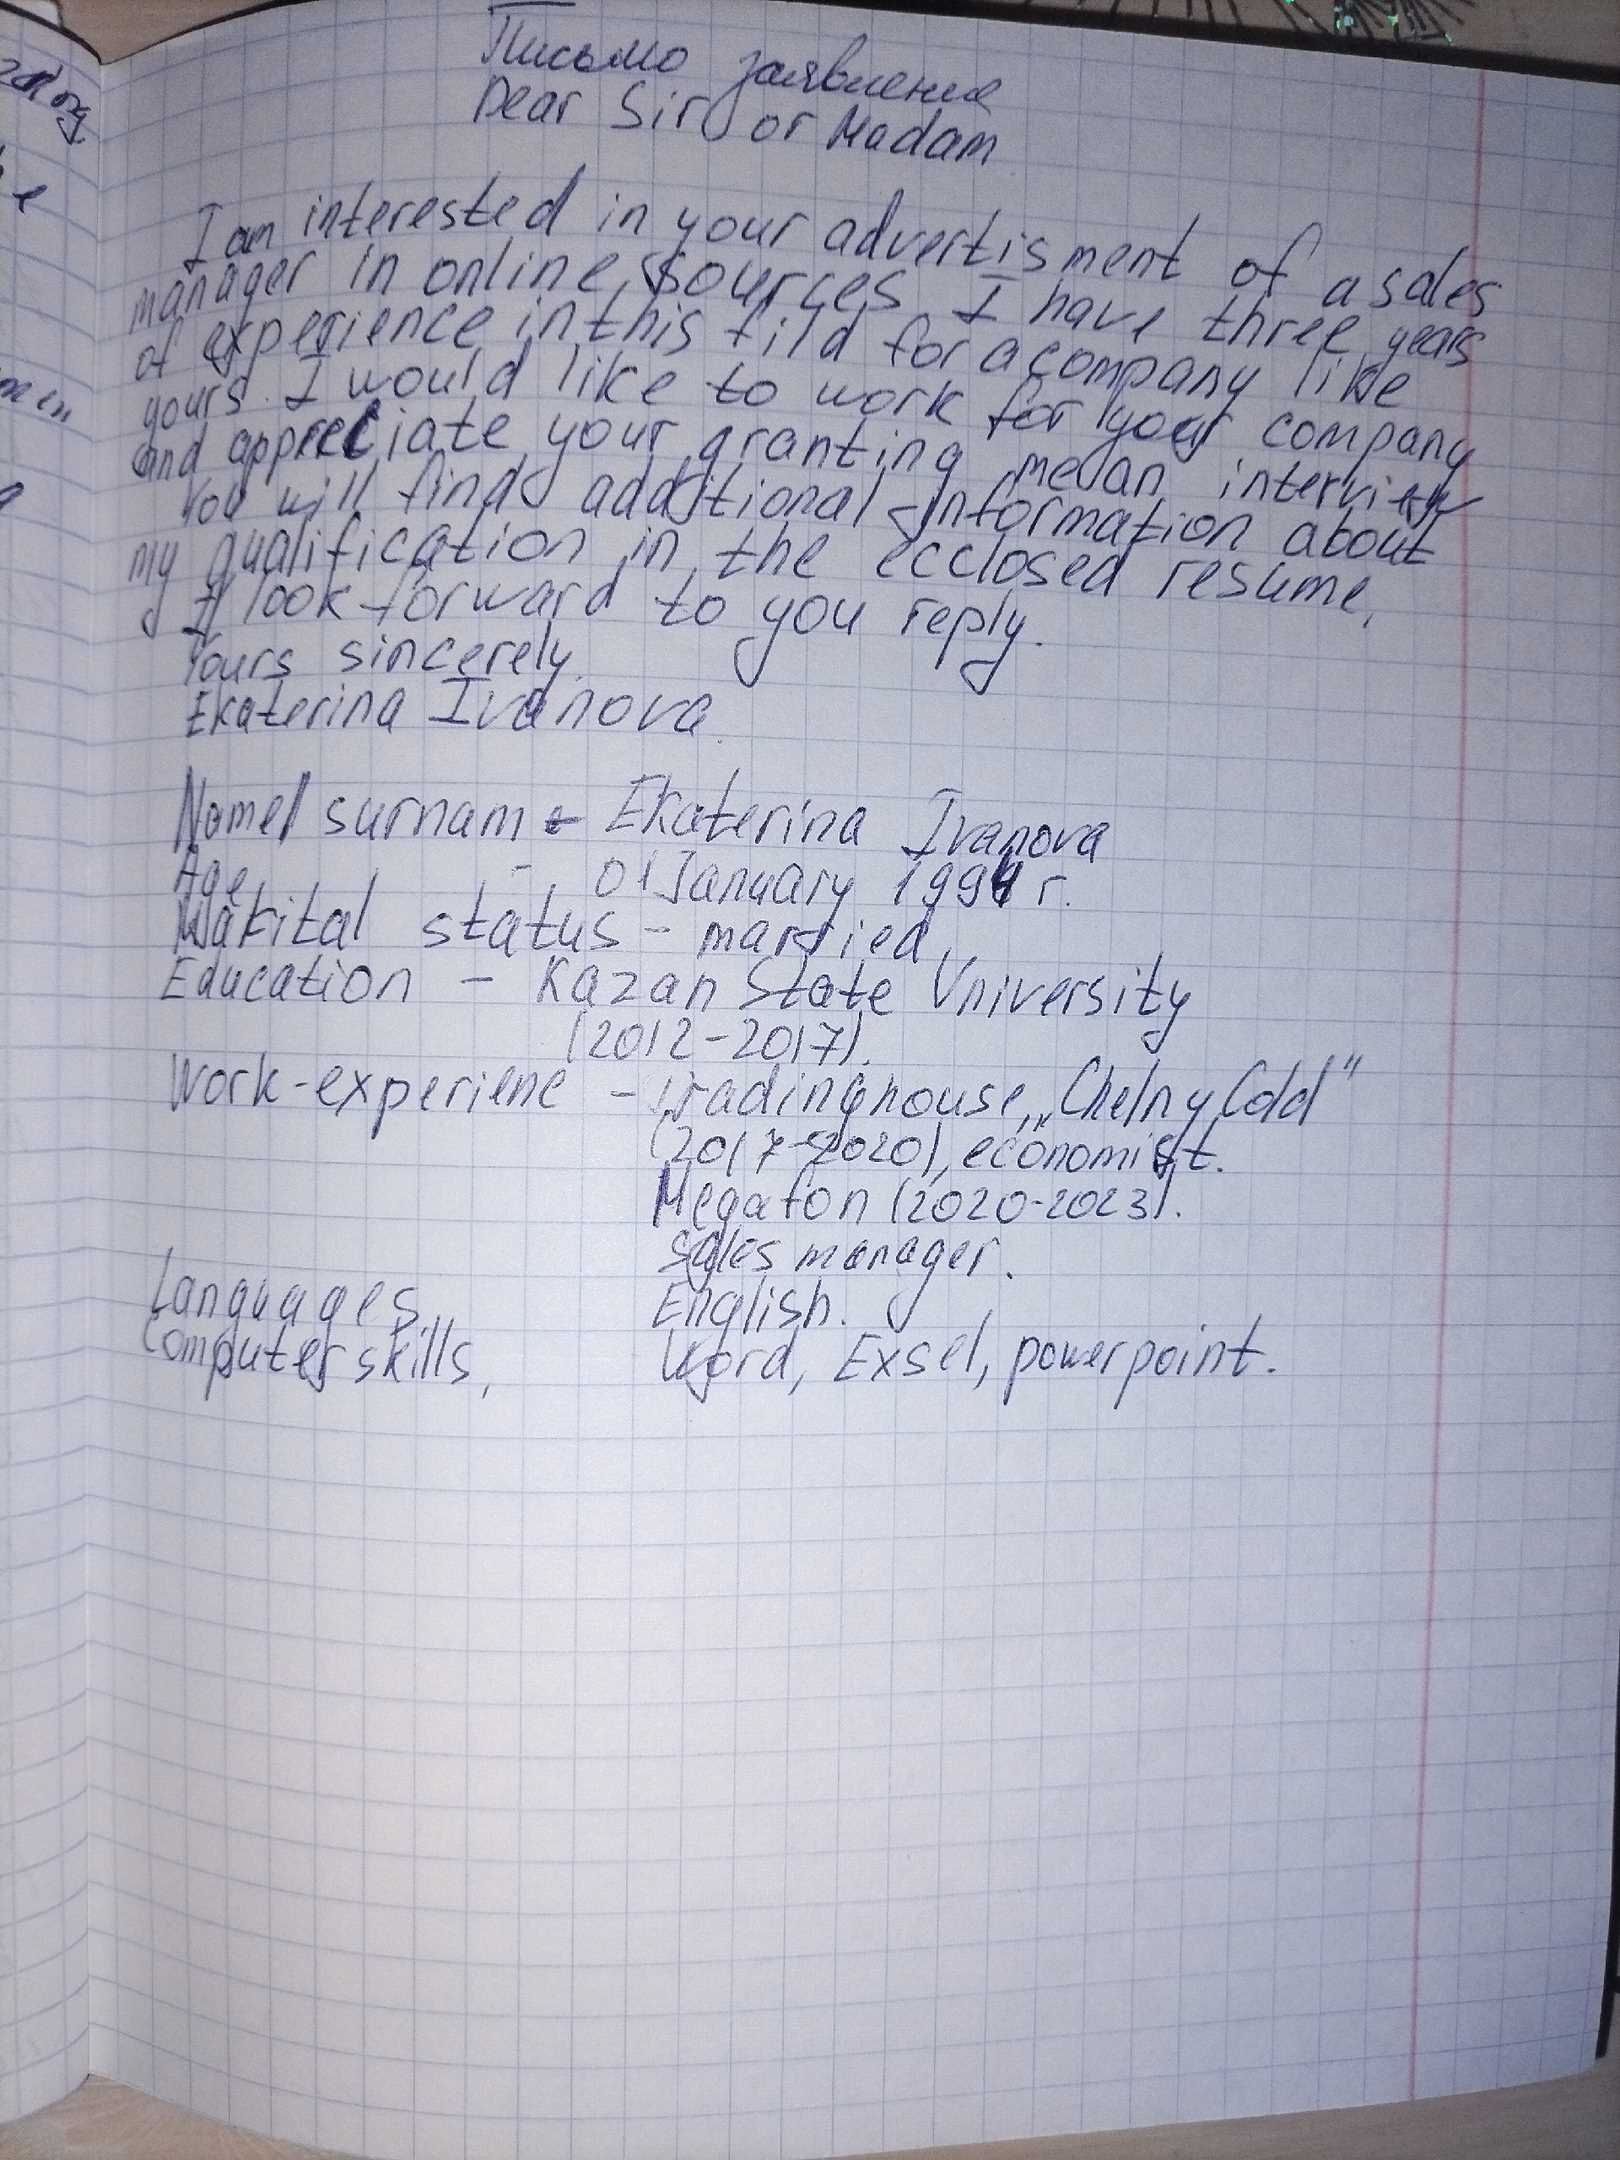 Письмо заявление
Dear Sir or Madam
I am interested in your advertisment of a sales
manager in online sources I have three years
of experience in this fild for a company like
yours. I would like to work for your company
and appreciate your granting me an interview
You will find additional information about
my qualification in the ecclosed resume,
I look forward to you reply.
Yours sincerely.
Ekaterina Ivanova.
Name surnam - Ekaterina Ivanova
Age - 01 January 1994 г.
Makital status - married,
Education - Kazan State University
(2012-2017).
Work-experiene - tradinghouse „Chelny Cold"
(2017-2020), economist.
Megafon (2020-2023).
Sales manager.
Languages English.
Computer skills, Word, Exsel, powerpoint.